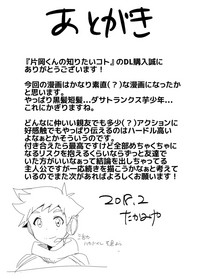 あとがき
『片岡くんの知りたいコト』のDL購入誠に
ありがとうございます!
今回の漫画はかなり素直(?)な漫画になったか
と思います。
やっぱり黒髪短髪…ダサトランクス芋少年…
これにかぎりますね。
どんなに仲いい親友でも多少(?)アクションに
好感触でもやっぱり伝えるのはハードル高い
よなぁとかそういうのです。
付き合えたら最高ですけど全部めちゃくちゃに
なるリスクを抱えるくらいならずっと友達で
いた方がいいなぁって結論を出しちゃってる
主人公ですが一応続きを描こうかなぁと考えて
いるのでまた次があればよろしくお願いします!
2018.2